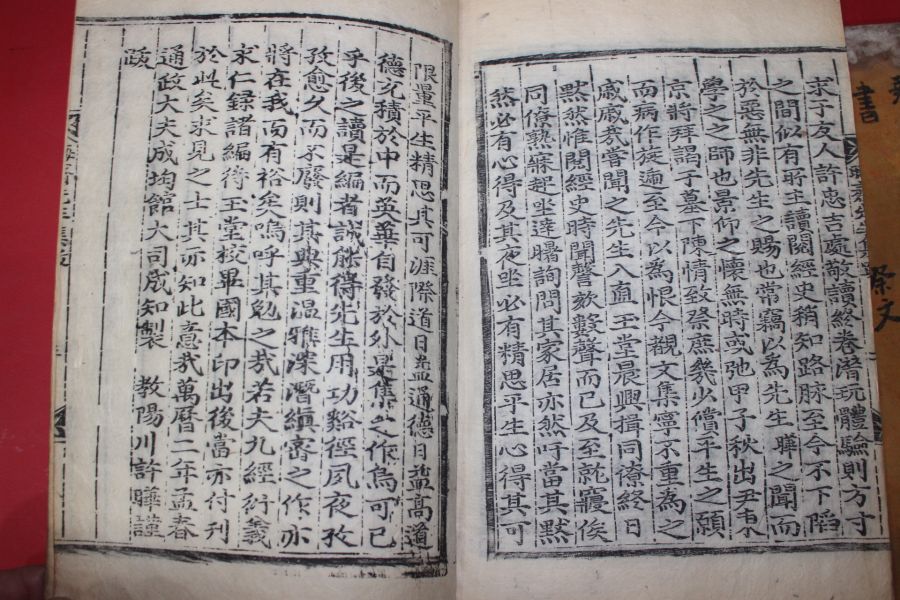 求予友人許忠吉處敬讀終卷潛玩體驗則方寸
之間似有所主讀閱經史稍知路脉至今不下陷
於惡無非先生之賜也常竊以為先生曄之聞而
學之之師也景仰之懷無時或弛甲子秋出尹
京將拜謁于墓下陳情致祭庶幾少償平生之願
而病作旋遞至今以為恨今觀文集寧不重為之
戚戚哉嘗聞之先生入直玉堂晨興揖同僚終日
默然惟閱經史時聞謦欬數聲而已及至就寢俟
同僚熟寐輒坐達曙詢問其家居亦然吁當其默
然必有心得及其夜坐必有精思平生心得其可
限量平生精思其可涯際道日益通德日益高道
德充積於中而英華自發於外是集之作烏可已
乎後之讀是編者誠能得先生用功谿徑夙夜孜
孜愈久而不廢則其典重溫雅深潛縝密之作亦
將在我而有裕矣嗚呼其勉之哉若夫九經衍義
求仁録諸編待玉堂校畢國本印出後當亦付刊
於此矣求見之士其亦知此意哉萬曆二年孟春
通政大夫成均館大司成知製 教陽川許曄謹
跋
書
祭文